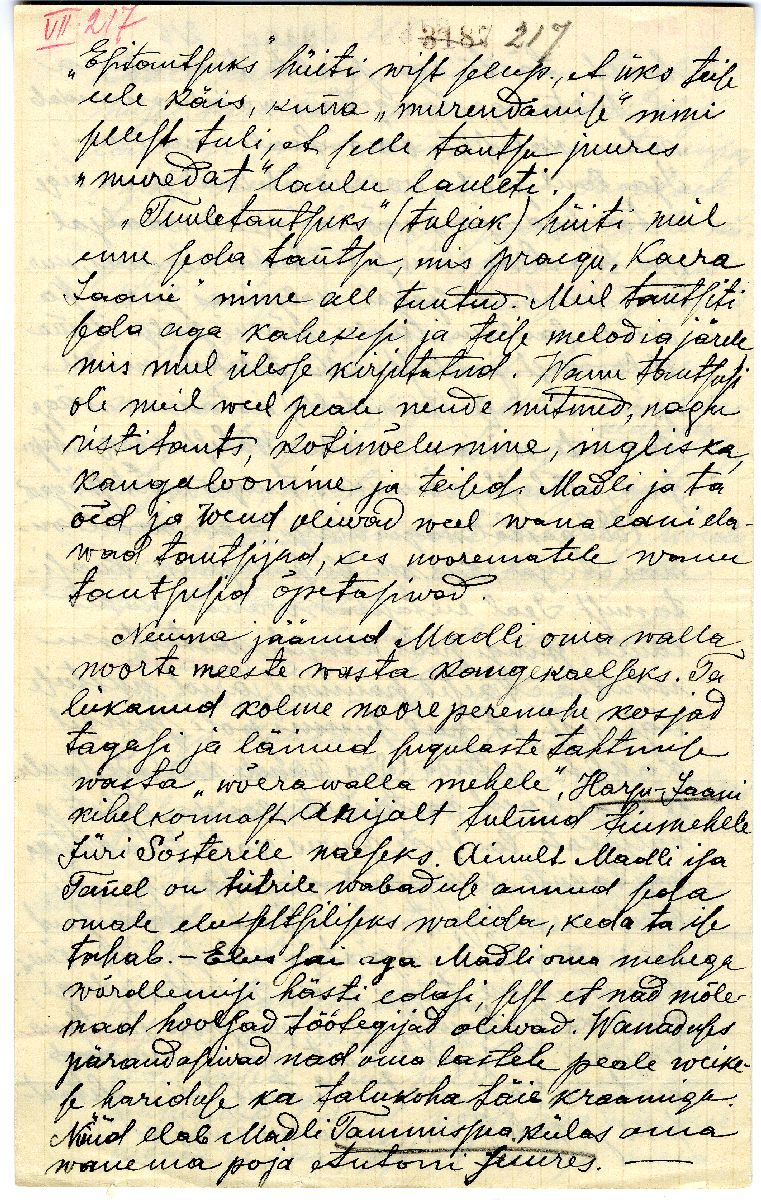 VII 217
3187 217
„Esitantsuks“ hüiti wist sellep., et üks teise
ele käis, kuna „murendamise“ nimi
sellest tuli, et selle tantsu juures
„muredat“ laulu lauleti.
„Tuuletantsuks“ (tuljak) hüiti meil
enne seda tantsu, mis praegu „Kaera
Jaani“ nime all tuntud. Meil tantsiti
seda aga kahekesi ja teise melodia järele
mis mul ülesse kirjutatud. Wanu tantsusi
oli meil weel peale nende mitmed, nagu
ristitants, kotinõelumine, ingliska,
kangaloomine ja teised. Madli ja ta
õed ja wend oliwad weel wana eani ela-
wad tantsijad, kes nooremateele wanu
tantsusid õpetasiwad.
Neiuna jäänud Madli oma walla
noorte meeste wasta kangekaelseks. Ta
lükanud kolme noore peremehe kosjad
tagasi ja läinud sugulaste tahtmise
wasta „wõerawalla mehele“, Harju-Jaani
kihelkonnast Anijalt tulnud tiumehele
Jüri Sösterile naeseks. Ainult Madli isa
Tanel on tütrile wabaduse annud seda
omale eluseltsiliseks walida, keda ta ise
tahab. – Elus sai aga Madli oma mehega
wõrdlemisi hästi edasi, sest et nad mõle-
mad hoolsad töötegijad oliwad. Wanaduses
pärandasiwad nad oma lastele peale weike-
se hariduse ka talukoha täie kraamiga.
Nüüd elab Madli Tammispea külas oma
wanema poja juures. —